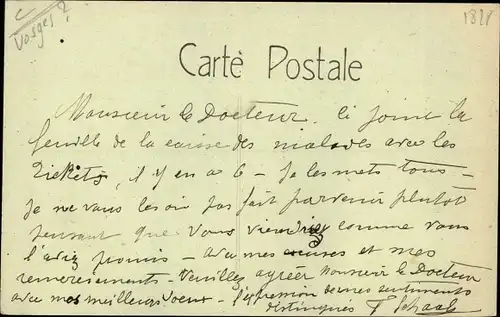 Vosges ?
Carte Postale
Monsieur le Docteur. Ci joint la
feuille de la caisse des malades avec les
tickets, il y en a 6 - Je les mets tous -
Je ne vous les ai pas fait parvenir plutôt
pensant que vous viendriez comme vous
l'aviez promis - avec mes excuses et mes
remerciements - Veuillez agréer Monsieur le Docteur
avec mes meilleurs voeux - l'expression de mes sentiments
distingués